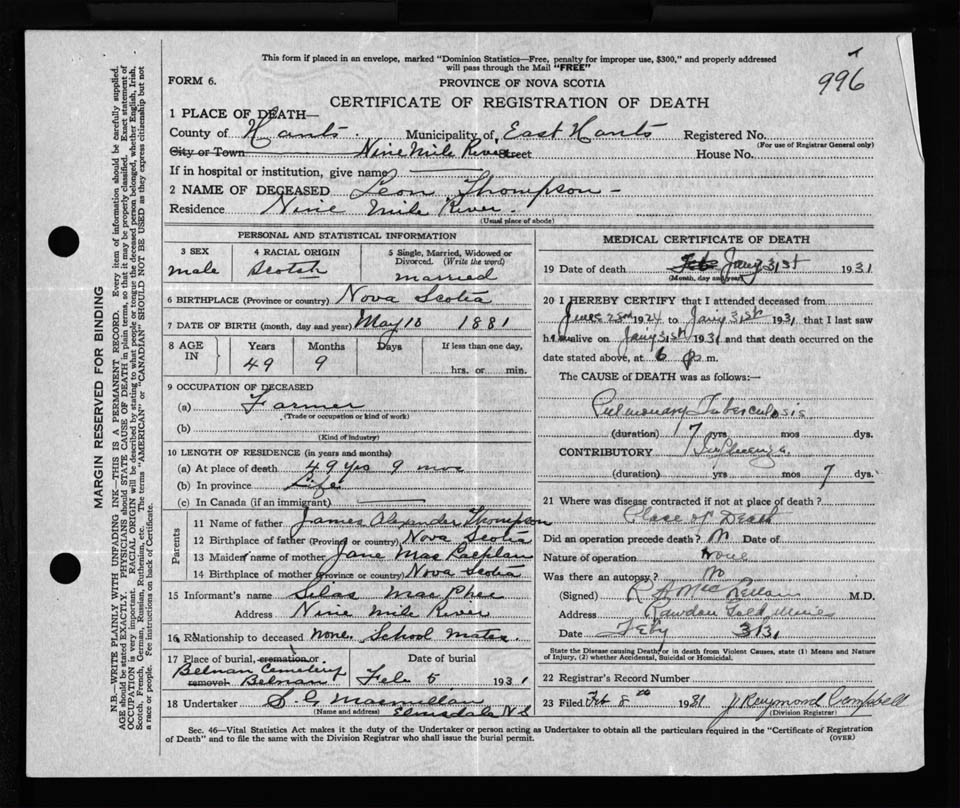 This form if placed in an envelope, marked "Dominion Statistics—Free, penalty for improper use, $300," and properly addressed
will pass through the Mail "FREE"
996
FORM 6.
PROVINCE OF NOVA SCOTIA
CERTIFICATE OF REGISTRATION OF DEATH
1 PLACE OF DEATH—
County of Hants. Municipality of East Hants Registered No.
(For use of Registrar General only)
City or Town Nine Mile River Street House No.
If in hospital or institution, give name
2 NAME OF DECEASED Leon Thompson
Residence Nine Mile River.
(Usual place of abode)
PERSONAL AND STATISTICAL INFORMATION
3 SEX 4 RACIAL ORIGIN 5 Single, Married, Widowed or
Divorced. (Write the word)
male Scotch married
6 BIRTHPLACE (Province or country) Nova Scotia
7 DATE OF BIRTH (month, day and year) May 10 1881
8 AGE IN Years Months Days If less than one day,
49 9 hrs. or min.
9 OCCUPATION OF DECEASED
(a) Farmer
(Trade or occupation or kind of work)
(b)
(Kind of industry)
10 LENGTH OF RESIDENCE (in years and months)
(a) At place of death 49 yrs 9 mos
(b) In province Life
(c) In Canada (if an immigrant)
Parents
11 Name of father James Alexander Thompson
12 Birthplace of father (Province or country) Nova Scotia
13 Maiden name of mother Jane Mac
14 Birthplace of mother (Province or country) Nova Scotia
15 Informant's name Silas MacPhee
Address Nine Mile River
16 Relationship to deceased none. School mates.
17 Place of burial, cremation or Date of burial
Belnan Cemetery
removal Belnan Feb 5 1931
18 Undertaker S. G
(Name and address) Elmsdale N S
MEDICAL CERTIFICATE OF DEATH
19 Date of death Feb Jany 31st 1931
(Month, day and year)
20 I HEREBY CERTIFY that I attended deceased from
June 23rd 1924 to Jany 31st 1931 that I last saw
him alive on Jany 31st 1931 and that death occurred on the
date stated above, at 6 p. m.
The CAUSE of DEATH was as follows:—
Pulmonary Tuberculosis
(duration) 7 yrs mos dys.
CONTRIBUTORY Influenza.
(duration) yrs mos 7 dys.
21 Where was disease contracted if not at place of death?
Place of Death
Did an operation precede death? No Date of
Nature of operation None
Was there an autopsy? No
(Signed) R B M.D.
Address Rawdon Gold Mines
Date Feby 3/31
State the Disease causing Death; or in death from Violent Causes, state (1) Means and
Nature of Injury, (2) whether Accidental, Suicidal or Homicidal.
22 Registrar's Record Number
23 Filed Feb 8th 1931 J Raymond Campbell
(Division Registrar)
Sec. 46—Vital Statistics Act makes it the duty of the Undertaker or person acting as Undertaker to obtain all the particulars required in the "Certificate of Registration
of Death" and to file the same with the Division Registrar who shall issue the burial permit. (OVER)
MARGIN RESERVED FOR BINDING
N.B.—WRITE PLAINLY WITH UNFADING INK—THIS IS A PERMANENT RECORD. Every item of information should be carefully supplied.
AGE should be stated EXACTLY. PHYSICIANS should STATE CAUSE OF DEATH in plain terms, so that it may be properly classified. Exact statement of
OCCUPATION is very important. RACIAL ORIGIN will be described by stating to what people or tongue the deceased person belonged, whether English, Irish,
Scotch, French, German, Russian, Ruthenian, etc. The terms "AMERICAN" or "CANADIAN" SHOULD NOT BE USED as they express citizenship but not
a race or people. See instructions on back of Certificate.